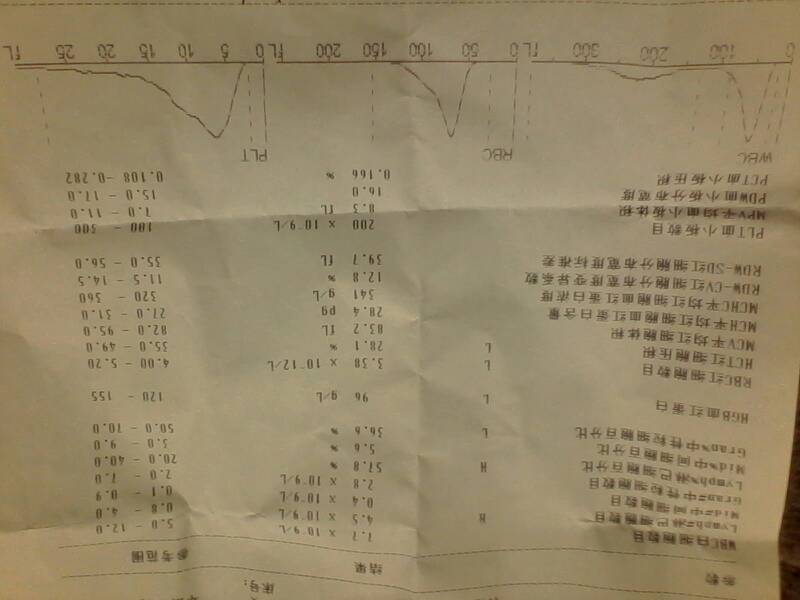 床号:
参数 结果 参考范围
WBC白细胞数目 7.7 x 10^9/L 5.0 - 12.0
Lymph#淋巴细胞数目 H 4.5 x 10^9/L 0.8 - 4.0
Mid#中间细胞数目 0.4 x 10^9/L 0.1 - 0.9
Gran#中性粒细胞数目 2.8 x 10^9/L 2.0 - 7.0
Lymph%淋巴细胞百分比 H 57.8 % 20.0 - 40.0
Mid%中间细胞百分比 5.6 % 3.0 - 9.0
Gran%中性粒细胞百分比 L 36.6 % 50.0 - 70.0
HGB血红蛋白 L 96 g/L 120 - 155
RBC红细胞数目 L 3.38 x 10^12/L 4.00 - 5.20
HCT红细胞压积 L 28.1 % 35.0 - 49.0
MCV平均红细胞体积 83.2 fL 82.0 - 95.0
MCH平均红细胞血红蛋白含量 28.4 pg 27.0 - 31.0
MCHC平均红细胞血红蛋白浓度 341 g/L 320 - 360
RDW-CV红细胞分布宽度变异系数 12.8 % 11.5 - 14.5
RDW-SD红细胞分布宽度标准差 39.7 fL 35.0 - 56.0
PLT血小板数目 200 x 10^9/L 100 - 300
MPV平均血小板体积 8.3 fL 7.0 - 11.0
PDW血小板分布宽度 16.0 15.0 - 17.0
PCT血小板压积 0.166 % 0.108 -0.282
WBC RBC PLT
0 100 200 300 fL 0 50 100 150 200 fL 0 5 10 15 20 25 fL